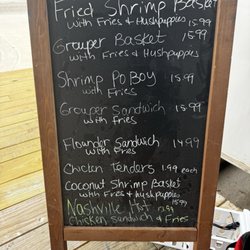 Fried Shrimp Basket
with Fries & Hushpuppies 15.99
Grouper Basket 15.99
with Fries & Hushpuppies
Shrimp PO BOY 15.99
with Fries
Grouper Sandwich 14.99
with Fries
Flounder Sandwich 14.99
with Fries
Chicken Tenders 1.99 each
Coconut Shrimp Basket
with Fries & Hushpuppies
15.99
Nashville Hot
Chicken Sandwich & Fries